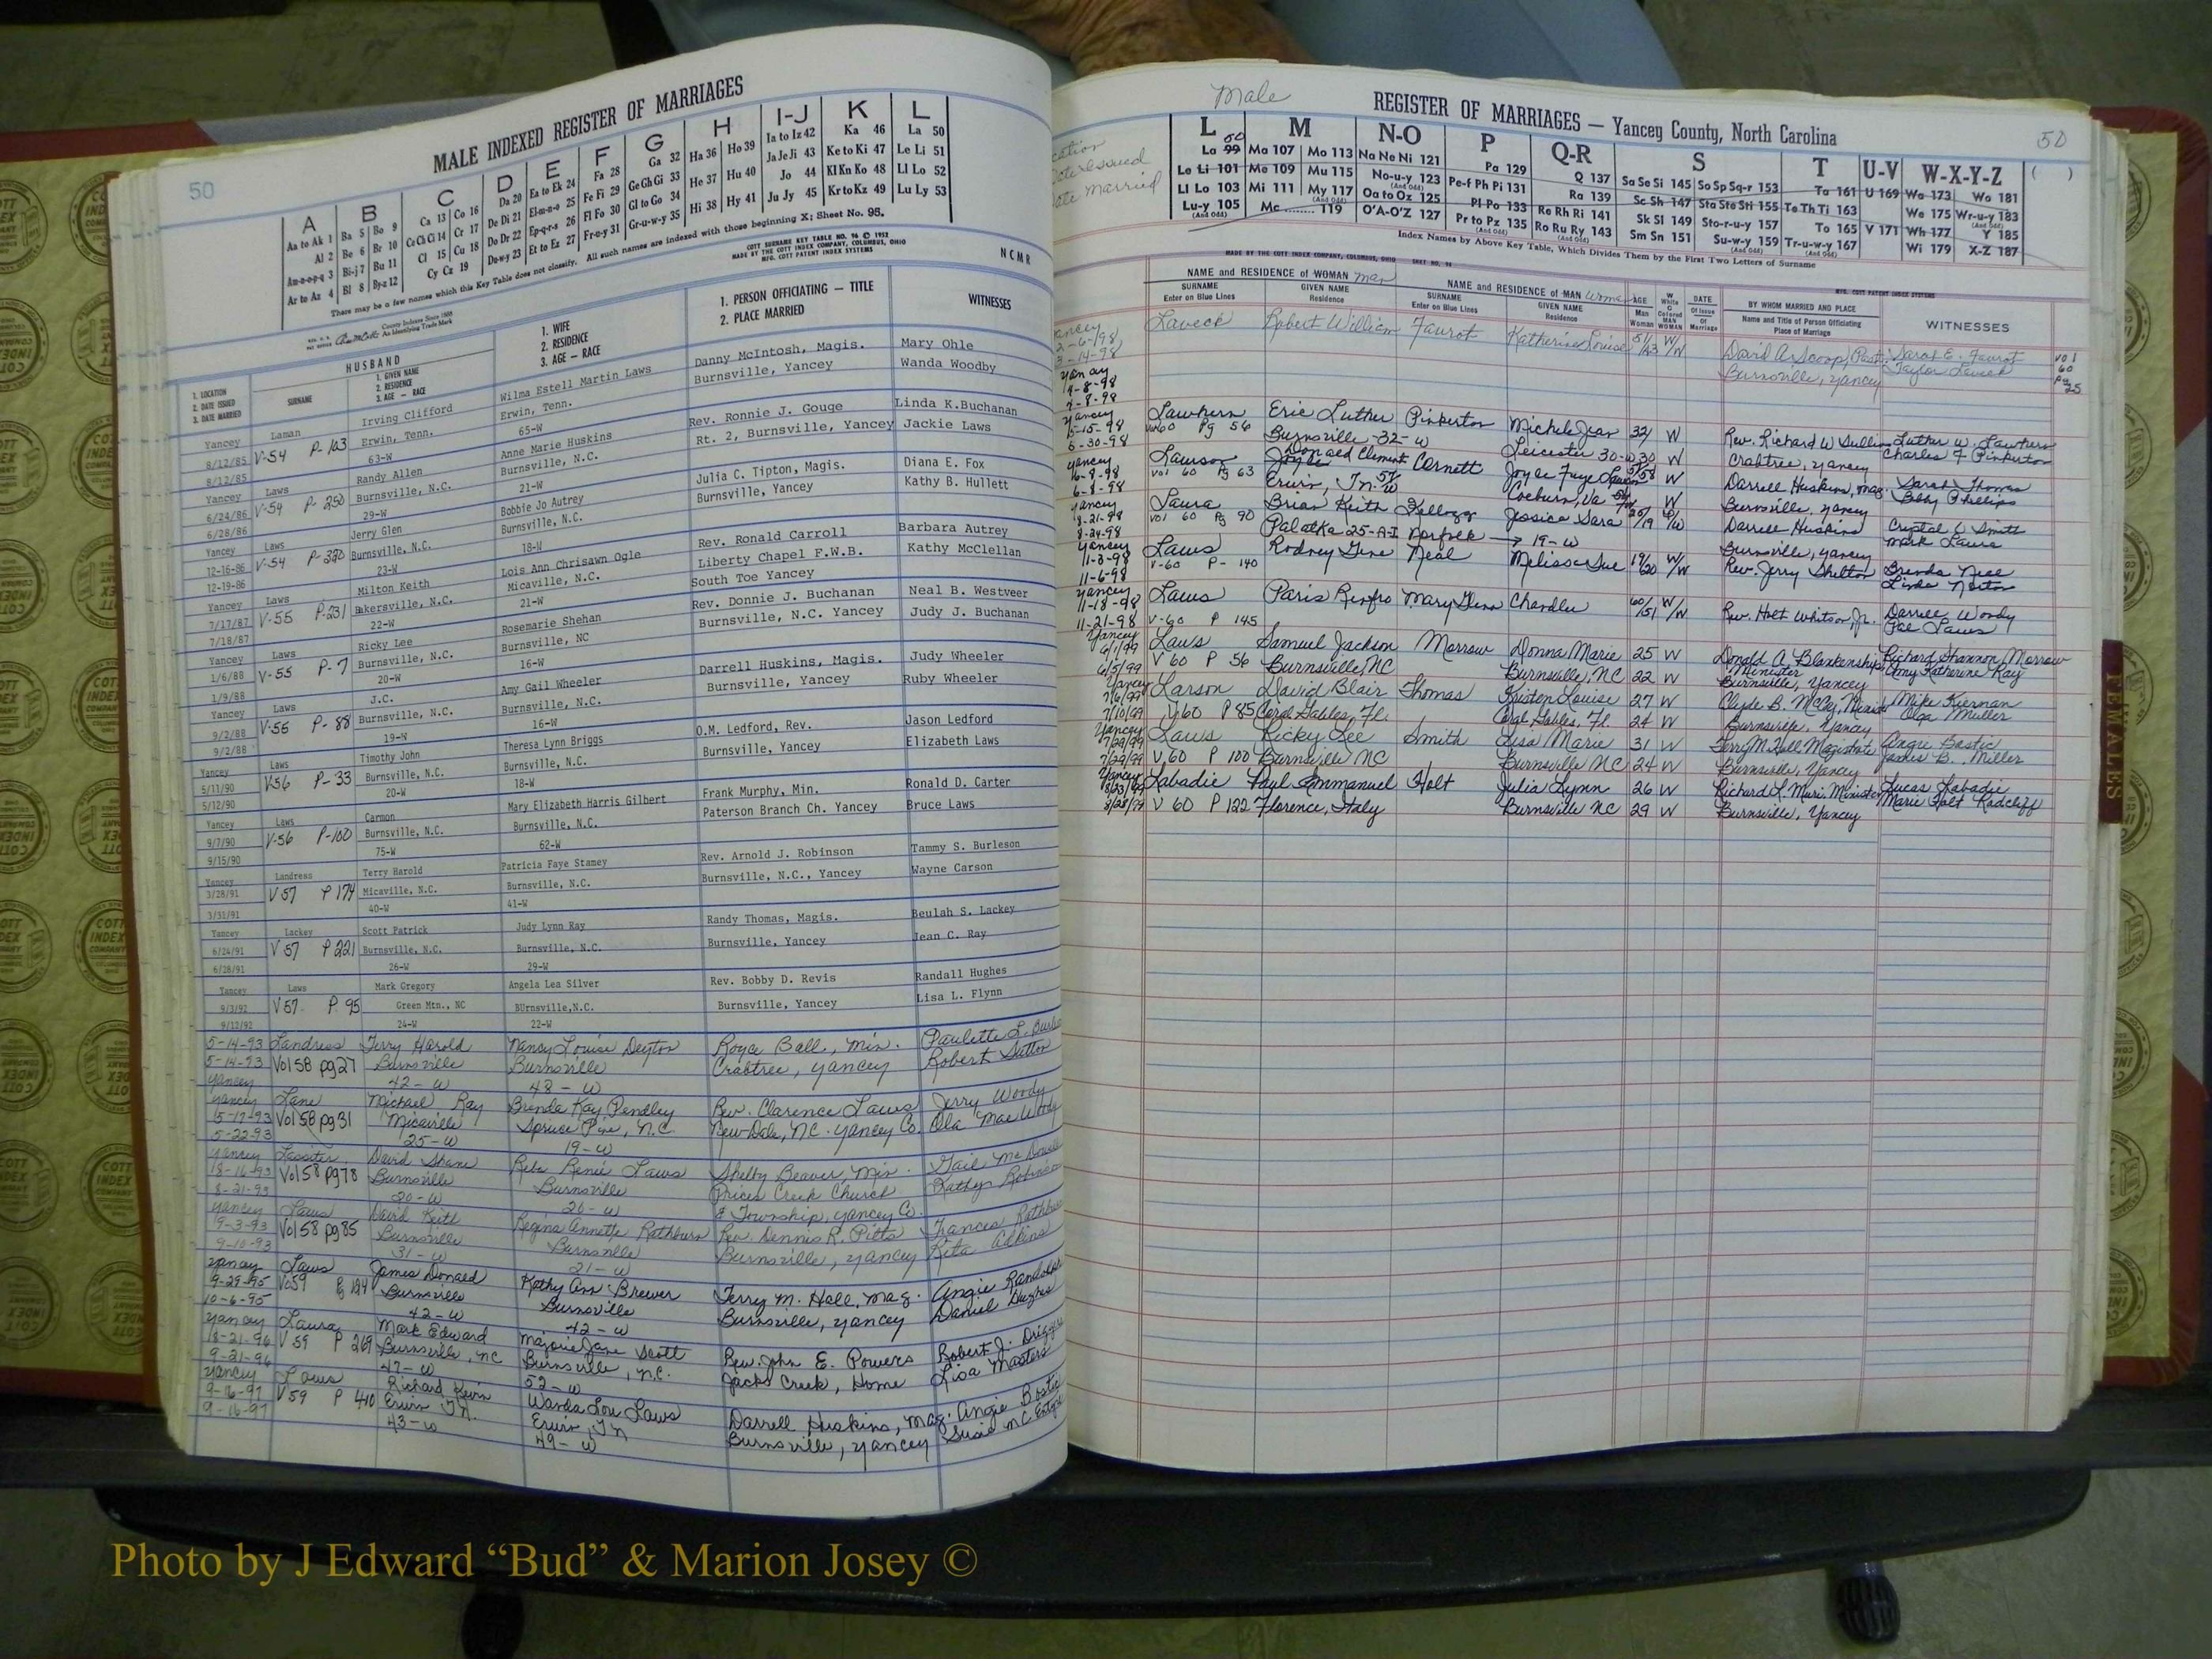 50
MALE INDEXED REGISTER OF MARRIAGES
A
Aa to Ak 1
Al 2
Am-n-o-p-q 3
Ar to Az 4
B
Ba 5 Bo 9
Be 6 Br 10
Bi-j 7 Bu 11
Bl 8 By-z 12
C
Ca 13 Co 16
Ce Ch Ci 14 Cr 17
Cl 15 Cu 18
Cy Cz 19
D
Da 20
De Di 21
Do Dr 22
De-w-y 23
E
Ea to Ek 24
El-m-n-o 25
Ep-q-r-s 26
Et to Ez 27
F
Fa 28
Fe Fi 29
Fl Fo 30
Fr-u-y 31
G
Ga 32
Ge Gh Gi 33
Gl to Go 34
Gr-u-w-y 35
H
Ha 36 Ho 39
He 37 Hu 40
Hi 38 Hy 41
I-J
Ia to Iz 42
Ja Je Ji 43
Jo 44
Ju Jy 45
K
Ka 46
Ke to Ki 47
Kl Kn Ko 48
Kr to Kz 49
L
La 50
Le Li 51
Ll Lo 52
Lu Ly 53
There may be a few names which this Key Table does not classify. All such names are indexed with those beginning X; Sheet No. 95.
County Indexes Since 1888
An Identifying Trade Mark
COTT SURNAME KEY TABLE NO. 96 © 1952
MADE BY THE COTT INDEX COMPANY, COLUMBUS, OHIO
MFG. COTT PATENT INDEX SYSTEMS
NCMR
1. LOCATION
2. DATE ISSUED
3. DATE MARRIED
HUSBAND
SURNAME
1. GIVEN NAME
2. RESIDENCE
3. AGE — RACE
1. WIFE
2. RESIDENCE
3. AGE — RACE
1. PERSON OFFICIATING — TITLE
2. PLACE MARRIED
WITNESSES
Yancey Laman Irving Clifford Wilma Estell Martin Laws Danny McIntosh, Magis. Mary Ohle
8/12/85 V-54 P-103 Erwin, Tenn. Erwin, Tenn. Burnsville, Yancey Wanda Woodby
8/12/85 63-W 65-W
Yancey Laws Randy Allen Anne Marie Huskins Rev. Ronnie J. Gouge Linda K.Buchanan
6/24/86 V-54 P-250 Burnsville, N.C. Burnsville, N.C. Rt. 2, Burnsville, Yancey Jackie Laws
6/28/86 29-W 21-W
Yancey Laws Jerry Glen Bobbie Jo Autrey Julia C. Tipton, Magis. Diana E. Fox
12-16-86 V-54 P-320 Burnsville, N.C. Burnsville, N.C. Burnsville, Yancey Kathy B. Hullett
12-19-86 23-W 18-W
Yancey Laws Milton Keith Lois Ann Chrisawn Ogle Rev. Ronald Carroll Barbara Autrey
7/17/87 V-55 P-231 Bakersville, N.C. Micaville, N.C. Liberty Chapel F.W.B. Kathy McClellan
7/18/87 22-W 21-W South Toe Yancey
Yancey Laws Ricky Lee Rosemarie Shehan Rev. Donnie J. Buchanan Neal B. Westveer
1/6/88 V-55 P-7 Burnsville, N.C. Burnsville, NC Burnsville, N.C. Yancey Judy J. Buchanan
1/9/88 20-W 16-W
Yancey Laws J.C. Amy Gail Wheeler Darrell Huskins, Magis. Judy Wheeler
9/2/88 V-55 P-88 Burnsville, N.C. Burnsville, N.C. Burnsville, Yancey Ruby Wheeler
9/2/88 19-W 16-W
Yancey Laws Timothy John Theresa Lynn Briggs O.M. Ledford, Rev. Jason Ledford
5/11/90 V-56 P-33 Burnsville, N.C. Burnsville, N.C. Burnsville, Yancey Elizabeth Laws
5/12/90 20-W 18-W
Yancey Laws Carmon Mary Elizabeth Harris Gilbert Frank Murphy, Min. Ronald D. Carter
9/7/90 V-56 P-100 Burnsville, N.C. Burnsville, N.C. Paterson Branch Ch. Yancey Bruce Laws
9/15/90 75-W 62-W
Yancey Landress Terry Harold Patricia Faye Stamey Rev. Arnold J. Robinson Tammy S. Burleson
3/28/91 V 57 P 174 Micaville, N.C. Burnsville, N.C. Burnsville, N.C., Yancey Wayne Carson
3/31/91 40-W 41-W
Yancey Lackey Scott Patrick Judy Lynn Ray Randy Thomas, Magis. Beulah S. Lackey
6/24/91 V 57 P 221 Burnsville, N.C. Burnsville, N.C. Burnsville, Yancey Jean C. Ray
6/28/91 26-W 29-W
Yancey Laws Mark Gregory Angela Lea Silver Rev. Bobby D. Revis Randall Hughes
9/3/92 V 57 P. 95 Green Mtn., NC BUrnsville,N.C. Burnsville, Yancey Lisa L. Flynn
9/12/92 24-W 22-W
5-14-93 Landress Terry Harold Nancy Louise Deyton Royce Ball, Min. Paulette L.
5-14-93 Vol 58 pg 27 Burnsville Burnsville Crabtree, Yancey Robert Sutton
Yancey 42-W 48-W
Yancey Lane Michael Ray Brenda Kay Pendley Rev. Clarence Laws Jerry Woody
5-17-93 Vol 58 pg 31 Micaville Spruce Pine, N.C. New Dale, N.C. Yancey Co. Ola Mae Woody
5-22-93 25-W 19-W
Yancey Lassiter David Shane Reba Renee Laws Shelby Beaver Min. Gail
8-16-93 Vol 58 pg 78 Burnsville Burnsville Prices Creek Church Kathy
8-21-93 20-W 20-W & Township, Yancey Co.
Yancey Laws David Keith Regina Annette Rathburn Rev. Dennis R. Pitts Frances
9-3-93 Vol 58 pg 85 Burnsville Burnsville Burnsville, Yancey Rita Adkins
9-10-93 31-W 21-W
Yancey Laws James Donald Kathy Ann Brewer Terry M. Hall, Mag. Angie
9-29-95 Vo 59 Burnsville Burnsville Burnsville, Yancey Daniel Hughes
10-6-95 42-W 42-W
Yancey Laura Mark Edward Marjorie Jane Scott Rev. John E. Powers Robert J.
8-21-96 V 59 P 269 Burnsville, NC Burnsville, N.C. Jacks Creek, Home Lisa Masters
9-21-96 47-W 52-W
Yancey Laws Richard Kevin Wanda Lou Laws Darrell Huskins, Mag. Angie Bostic
9-16-97 V 59 P 410 Erwin TN. Erwin, TN Burnsville, Yancey Susie
9-16-97 43-W 49-W
Male
50
REGISTER OF MARRIAGES — Yancey County, North Carolina
Date Issued
Date Married
L
50
La 99
Le Li 101
Ll Lo 103
Lu-y 105
(And Odd)
M
Ma 107 Mo 113
Me 109 Mu 115
Mi 111 My 117
(And Odd)
Mc 119
N-O
Na Ne Ni 121
No-u-y 123
(And Odd)
Oa to Oz 125
O'A-O'Z 127
P
Pa 129
Pe-f Ph Pi 131
Pl Po 133
Pr to Pz 135
(And Odd)
Q-R
Q 137
Ra 139
Re Rh Ri 141
Ro Ru Ry 143
(And Odd)
S
Sa Se Si 145 So Sp Sq-r 153
Sc Sh 147 Sta Ste Sti 155
Sk Sl 149 Sto-r-u-y 157
Sm Sn 151 Su-w-y 159
(And Odd)
T
Ta 161
Te Th Ti 163
To 165
Tr-u-w-y 167
(And Odd)
U-V
U 169
V 171
W-X-Y-Z
Wa 173 Wo 181
We 175 Wr-u-y 183
Wh 177 Y 185
Wi 179 X-Z 187
( )
Index Names by Above Key Table, Which Divides Them by the First Two Letters of Surname
MADE BY THE COTT INDEX COMPANY, COLUMBUS, OHIO SHEET NO. 96
MFG. COTT PATENT INDEX SYSTEMS
NAME and RESIDENCE of WOMAN Man
SURNAME
Enter on Blue Lines
GIVEN NAME
Residence
NAME and RESIDENCE of MAN Woman
SURNAME
Enter on Blue Lines
GIVEN NAME
Residence
AGE
Man
Woman
W
White
C
Colored
MAN
WOMAN
DATE
Of Issue
Of
Marriage
BY WHOM MARRIED AND PLACE
Name and Title of Person Officiating
Place of Marriage
WITNESSES
Yancey Laveck Robert William Faurot Katherine Louise 51/43 W/W David A. Scoop, Sarah E. Faurot Vol
2-6-98 Burnsville, Yancey Taylor Laveck 60
3-14-98 Pg 25
Yancey
4-8-98
4-8-98
Yancey Lawhern Eric Luther Pinkerton Michele Jean 32/ W Rev. Richard W. Luther W. Lawhern
5-15-98 Vol 60 Pg 56 Burnsville-32-W Leicester 30-W 30 W Crabtree, Yancey Charles F Pinkerton
5-30-98
Yancey Lawson Donald Clement Cornett Joyce Faye W Darrell Huskins, Mag. Sarah Thomas
6-8-98 Vol 60 Pg 63 Erwin, Tn. W Coeburn, Va W Burnsville, Yancey Bobby Phillips
6-8-98
Yancey Laura Brian Keith Kellogg Jessica Sara 25/19 Darrell Huskins Crystal L Smith
8-21-98 Vol 60 Pg 90 Palatka 25-A-I Norfolk → 19-W Burnsville, Yancey Mark Laura
8-24-98
Yancey Laws Rodney Gene Neal Melissa Sue 19/20 W/W Rev. Jerry Shelton Brenda Neal
11-3-98 V-60 P-140 Linda Norton
11-6-98
Yancey Laws Paris Renfro Mary Glenn Chandler 60/51 W/W Rev. Holt Whitson Jr. Darrell Woody
11-18-98 V-60 P 145 Laws
11-21-98
Yancey Laws Samuel Jackson Morrow Donna Marie 25 W Donald A. Blankenship Richard Shannon Morrow
6/1/99 V 60 P 56 Burnsville, NC Burnsville, NC 22 W Minister Amy Katherine Ray
6/5/99 Burnsville, Yancey
Yancey Larson David Blair Thomas Kristen Louise 27 W Clyde B. McCoy, Mike Kiernan
7/6/99 V 60 P 85 Coral Gables, Fl. Coral Gables, Fl. 24 W Burnsville, Yancey Olga Muller
7/10/99
Yancey Laws Ricky Lee Smith Lisa Marie 31 W Terry M Hall Magistrate Angie Bostic
7/29/99 V 60 P 100 Burnsville NC Burnsville NC 24 W Burnsville, Yancey James B. Miller
7/29/99
Yancey Labadie Paul Emmanuel Holt Julia Lynn 26 W Richard L. Minister Lucas Labadie
8/28/99 V 60 P 122 Florence, Italy Burnsville NC 29 W Burnsville, Yancey Marie Holt Radcliff
FEMALES
COTT
INDEX
COMPANY
Photo by J Edward “Bud” & Marion Josey ©